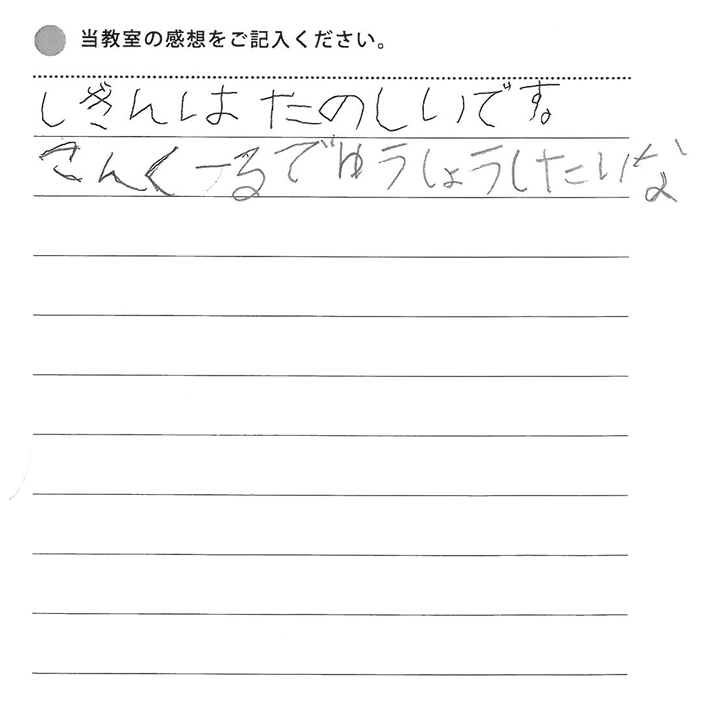 当教室の感想をご記入ください。
しぎんはたのしいです。
こんくーるでゆうしょうしたいな